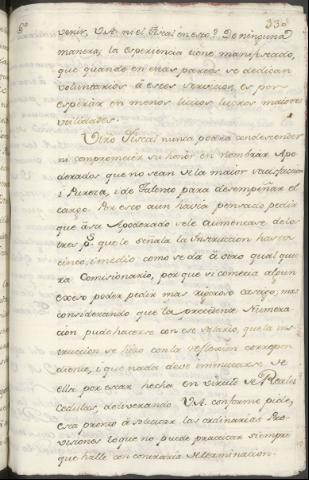 330
venir, V.A. ni el Fiscal en esto? De ninguna
manera; la esperiencia tiene manifestado,
que quando en otras partes se dedican
voluntarios à estos servicios, es por
esperar en menos licitos lucros maiores
utilidades.
Otro Fiscal nunca podra condescender
ni comprometer su honor en nombrar Apo
derados que no sean de la maior satisfaccion
i Pureza, i de talento para desempeñar el
cargo. Por esto aun havia pensado pedir
que à su Apoderado se le aumentase de los
tres p.s que le señala la Instruccion hasta
cinco, i medio como se da à otro qual que
ra Comisionario, por que si cometia algun
exceso poder pedir mas rigoroso castigo; mas
considerando que la precedente Numera
cion pude hacerse con ese salario, que la ins
truccion se hizo con la reflexion correspon
diente, i que nada deve innovarse de
ella por estar hecha en virtud de Reales
Cedulas, deliverando V.A. conforme pide,
esta pronto à solicitar las ordinarias Pro
visiones lo que no puede practicar siempre
que halle con contraria determinacion.